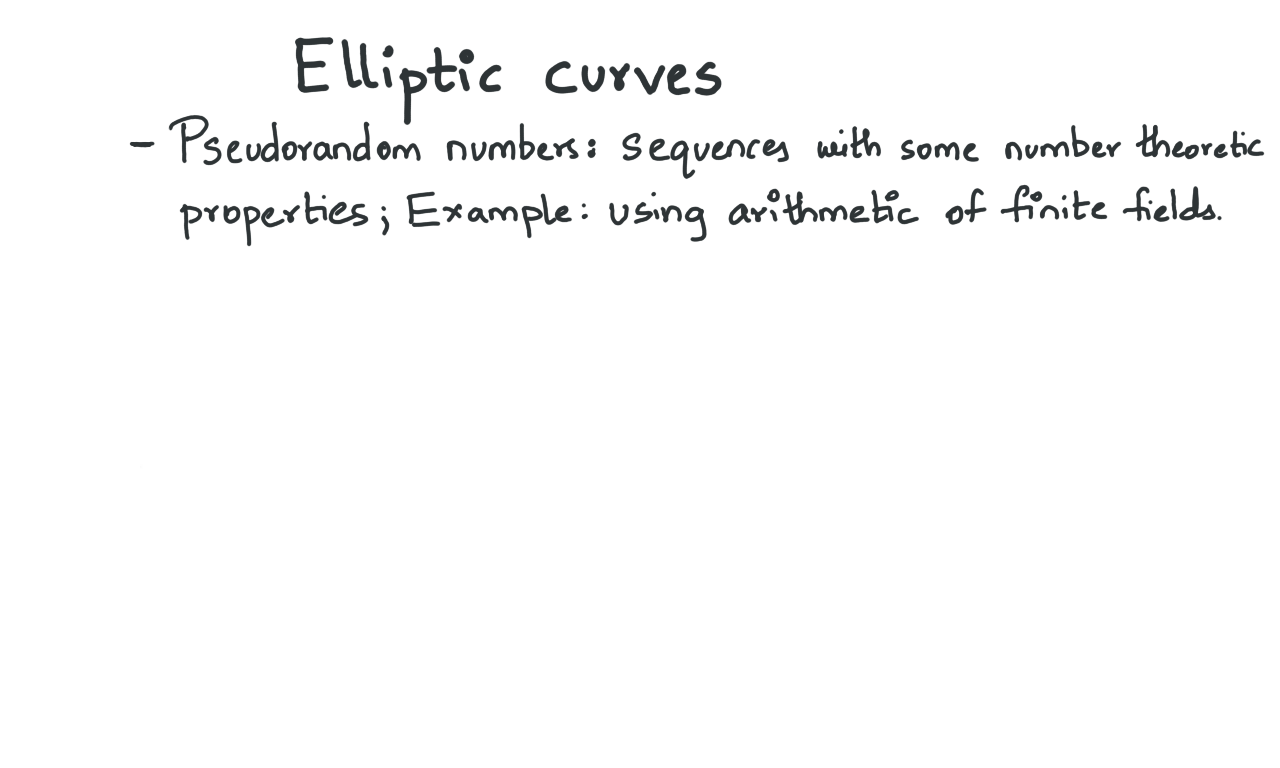 Elliptic curves
- Pseudorandom numbers: sequences with some number theoretic
properties; Example: using arithmetic of finite fields.